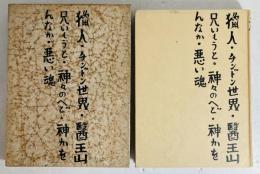 猟人・タントン世界・醫王山
兄いもうと・神々のへど・神かを
んなか・悪い魂
猟人・タントン世界・醫王山
兄いもうと・神々のへど・神かを
んなか・悪い魂